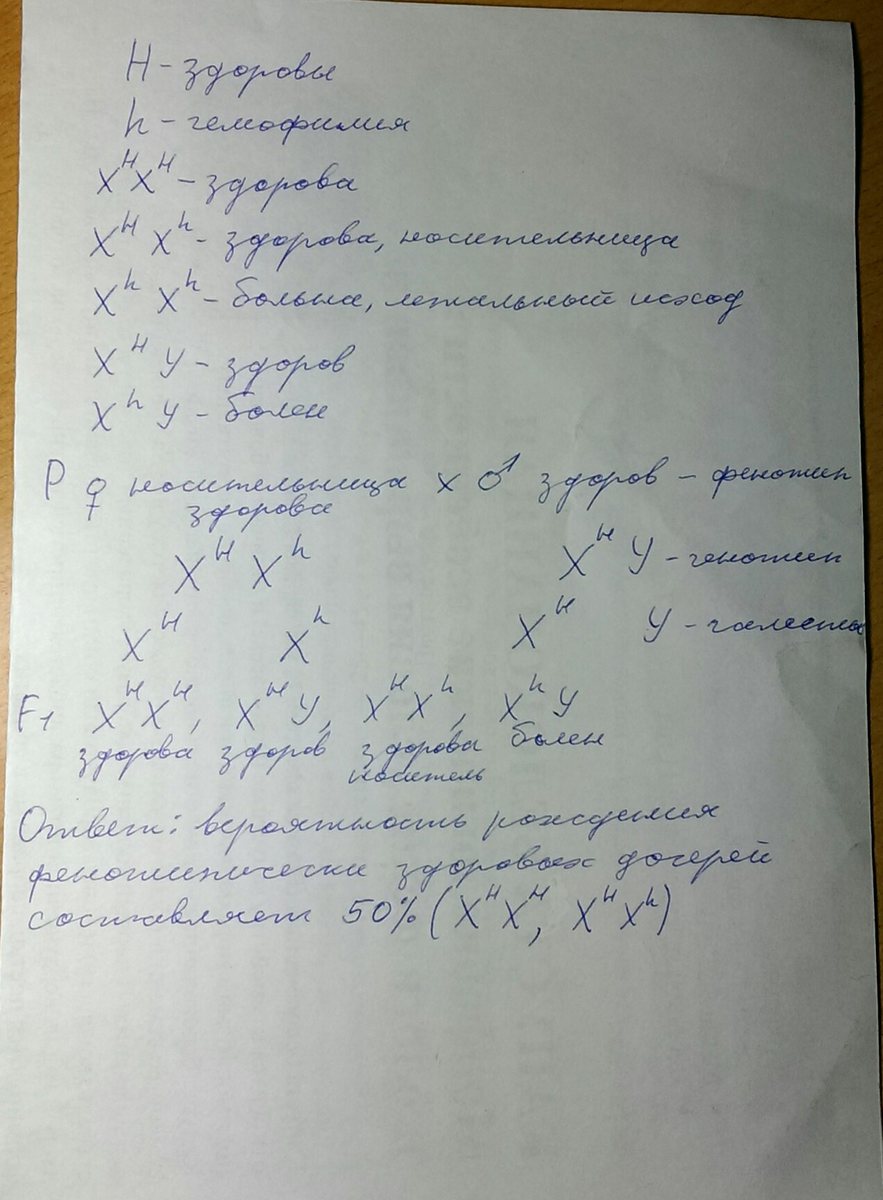 H - здоровы
h - гемофилия
XᴴXᴴ - здорова
Xᴴ Xʰ - здорова, носительница
Xʰ Xʰ - больна, летальный исход
Xᴴ У - здоров
Xʰ У - болен
P ♀ носительница х ♂ здоров - фенотип
здорова
Xᴴ Xʰ Xᴴ У - генотип
Xᴴ Xʰ Xᴴ У - гаметы
F₁ XᴴXᴴ, Xᴴ У, XᴴXʰ, Xʰ У
здорова здоров здорова болен
носитель
Ответ: вероятность рождения
фенотипически здоровых дочерей
составляет 50% (XᴴXᴴ, XᴴXʰ)